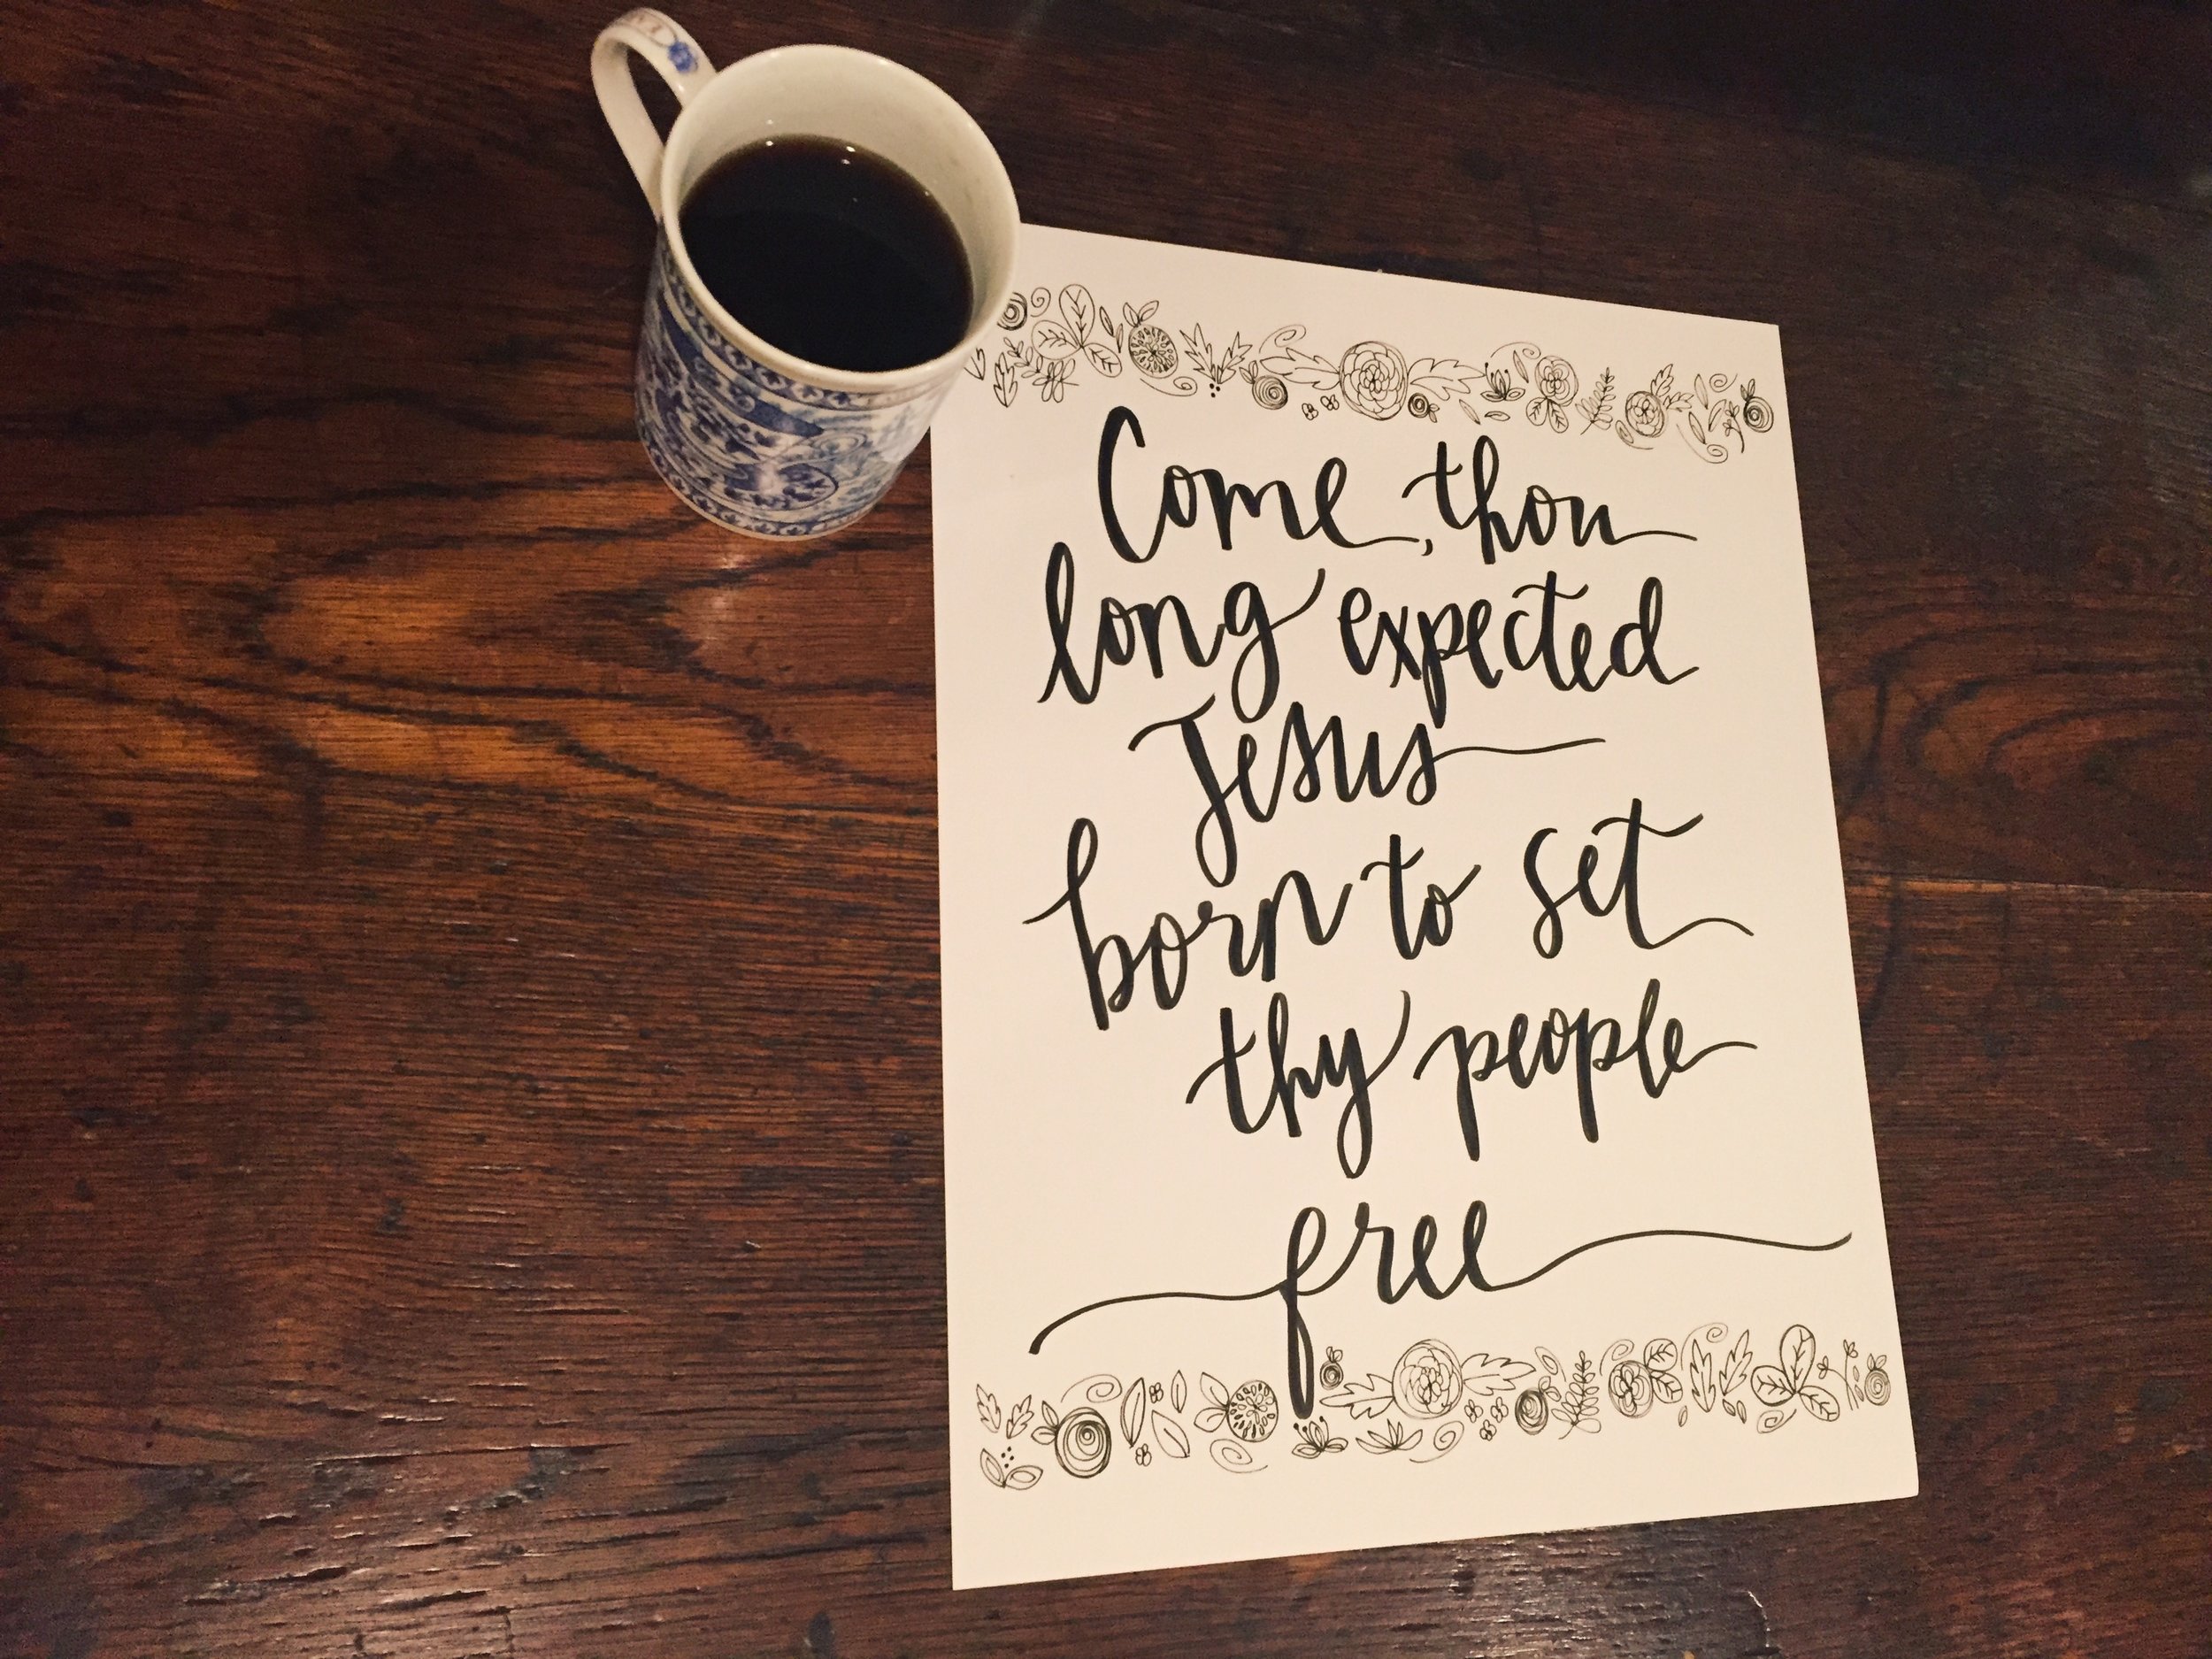 Come, thou
long expected
Jesus
born to set
thy people
free